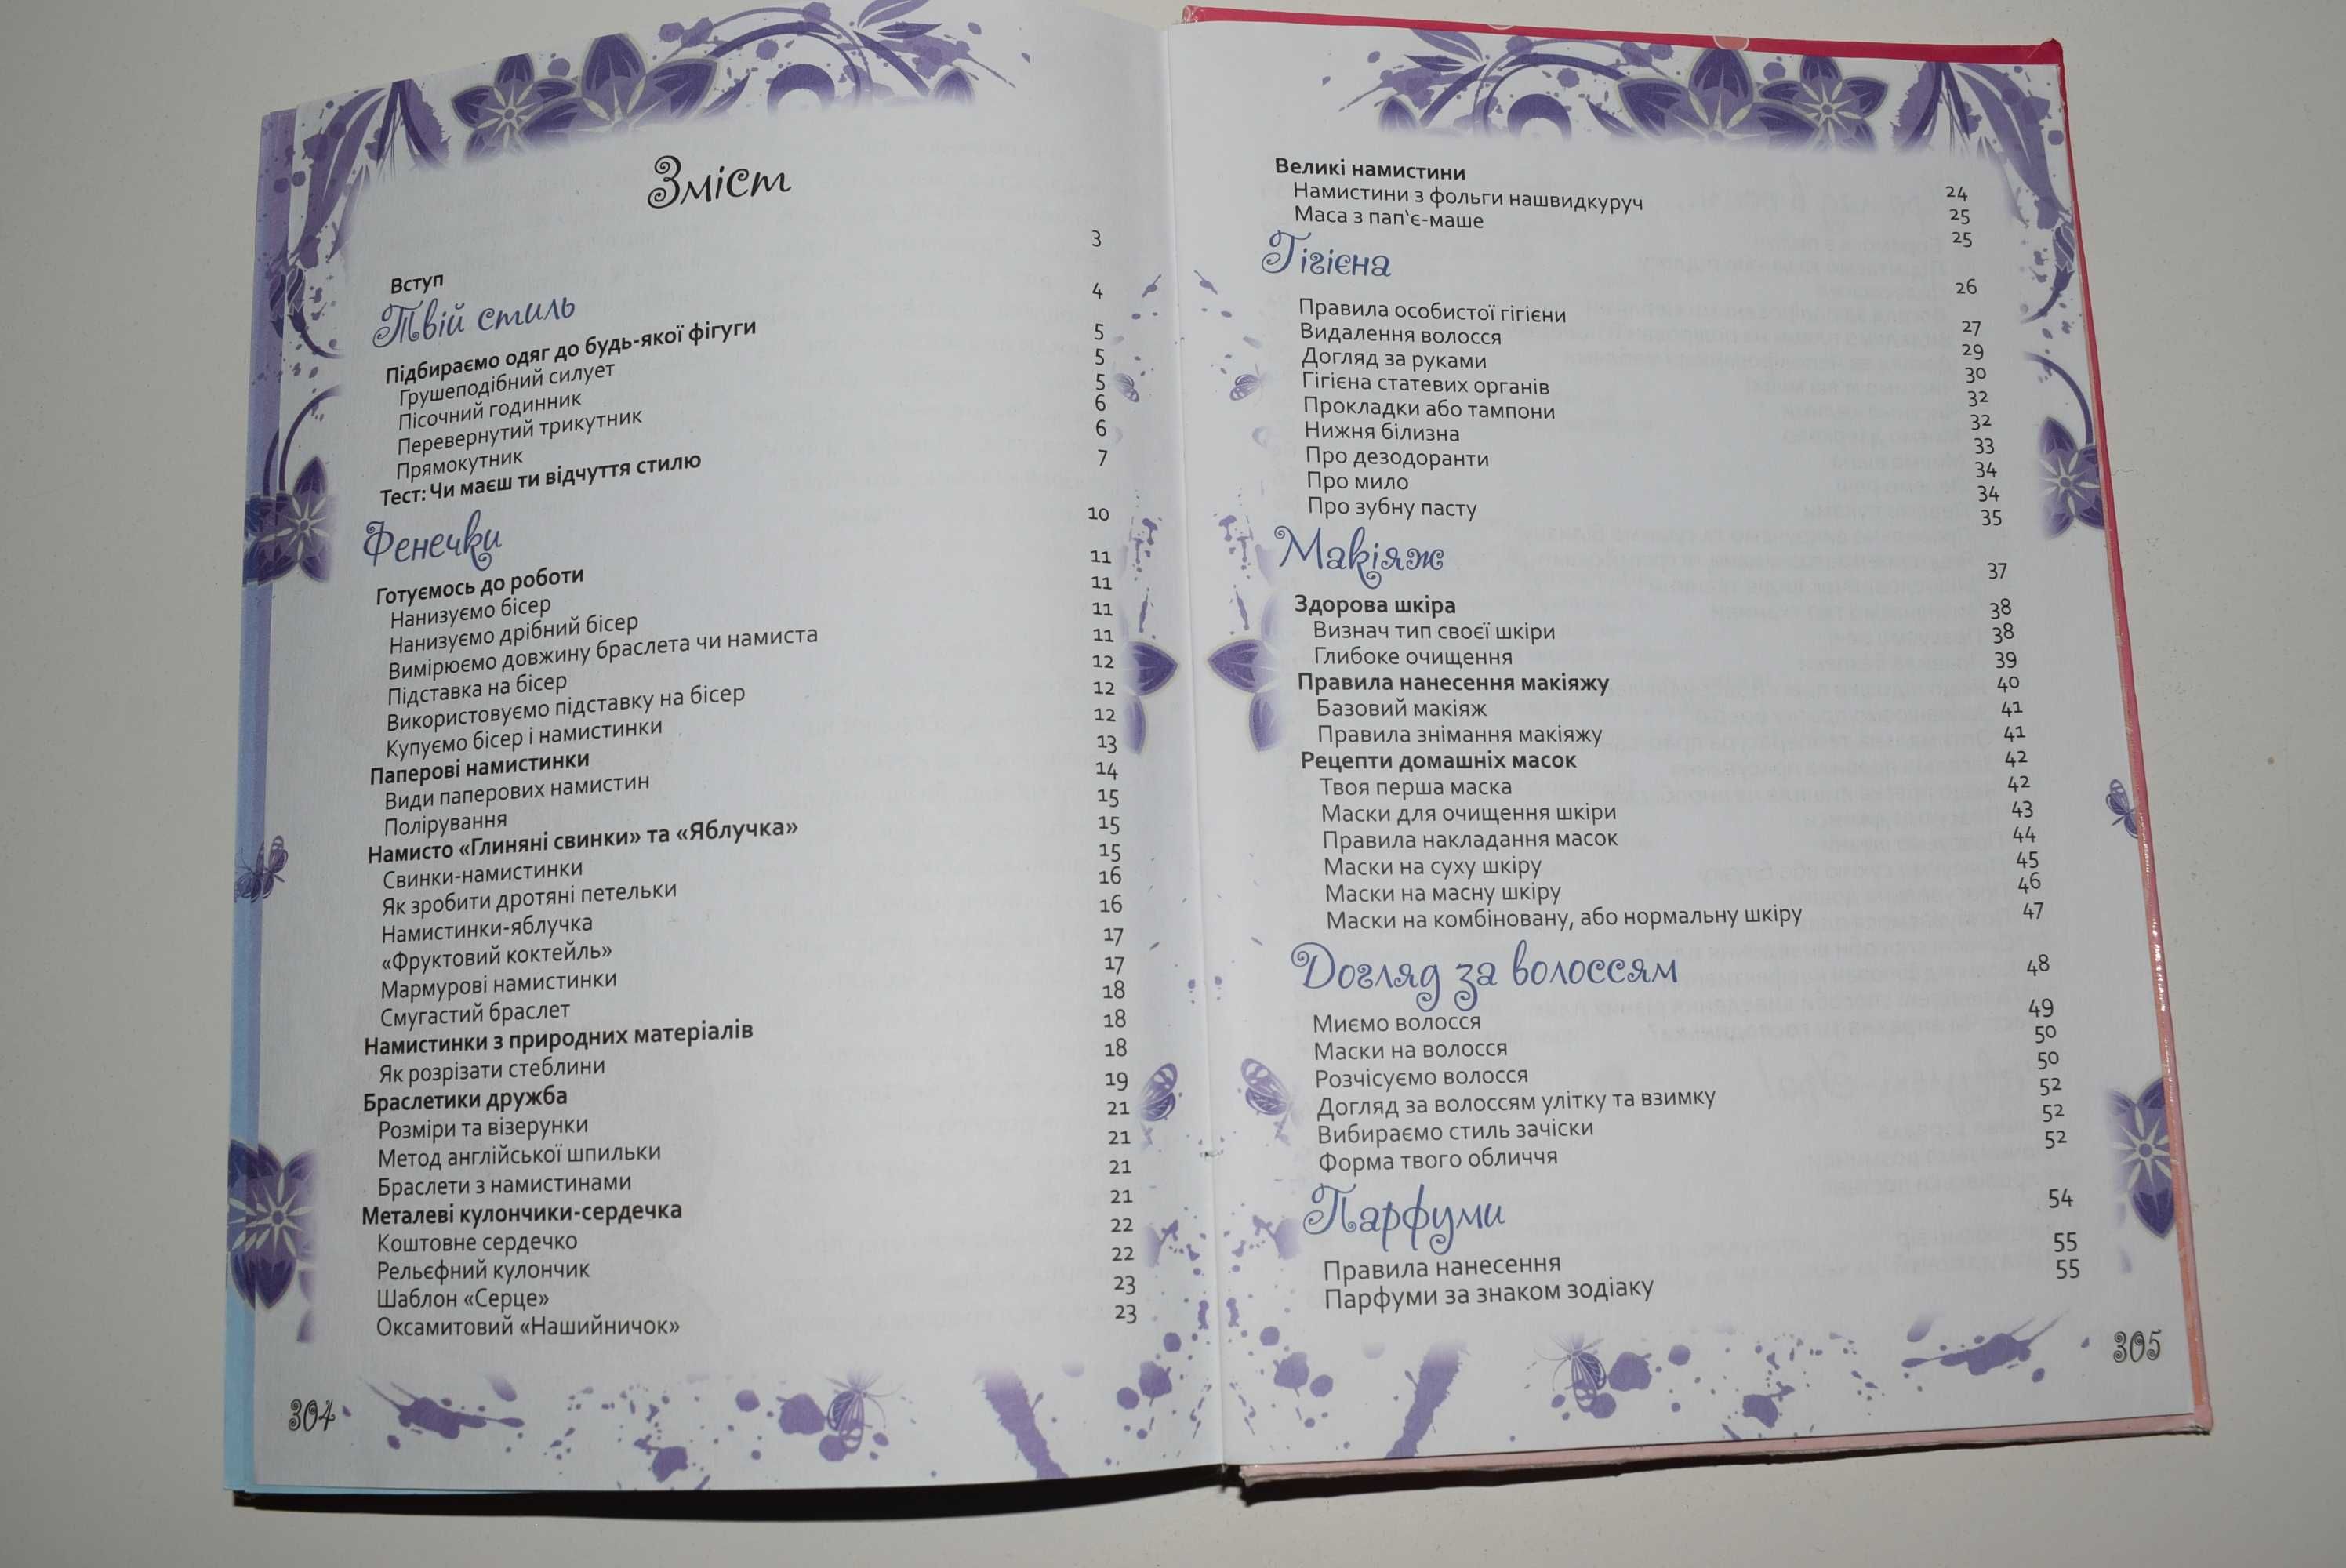 Зміст
Вступ 3
Твій стиль 4
Підбираємо одяг до будь-якої фігуги 5
Грушеподібний силует 5
Пісочний годинник 5
Перевернутий трикутник 6
Прямокутник 6
Тест: Чи маєш ти відчуття стилю 7
Фенечки 10
Готуємось до роботи 11
Нанизуємо бісер 11
Нанизуємо дрібний бісер 11
Вимірюємо довжину браслета чи намиста 11
Підставка на бісер 12
Використовуємо підставку на бісер 12
Купуємо бісер і намистинки 12
Паперові намистинки 13
Види паперових намистин 14
Полірування 15
Намисто «Глиняні свинки» та «Яблучка» 15
Свинки-намистинки 15
Як зробити дротяні петельки 16
Намистинки-яблучка 16
«Фруктовий коктейль» 17
Мармурові намистинки 17
Смугастий браслет 18
Намистинки з природних матеріалів 18
Як розрізати стеблини 18
Браслетики дружба 19
Розміри та візерунки 21
Метод англійської шпильки 21
Браслети з намистинами 21
Металеві кулончики-сердечка 21
Коштовне сердечко 22
Рельєфний кулончик 22
Шаблон «Серце» 23
Оксамитовий «Нашийничок» 23
304
Великі намистини 24
Намистини з фольги нашвидкуруч 25
Маса з пап‘є-маше 25
Гігієна 26
Правила особистої гігієни 27
Видалення волосся 29
Догляд за руками 30
Гігієна статевих органів 32
Прокладки або тампони 32
Нижня білизна 33
Про дезодоранти 34
Про мило 34
Про зубну пасту 35
Макіяж 37
Здорова шкіра 38
Визнач тип своєї шкіри 38
Глибоке очищення 39
Правила нанесення макіяжу 40
Базовий макіяж 41
Правила знімання макіяжу 41
Рецепти домашніх масок 42
Твоя перша маска 42
Маски для очищення шкіри 43
Правила накладання масок 44
Маски на суху шкіру 45
Маски на масну шкіру 46
Маски на комбіновану, або нормальну шкіру 47
Догляд за волоссям 48
Миємо волосся 49
Маски на волосся 50
Розчісуємо волосся 50
Догляд за волоссям улітку та взимку 52
Вибираємо стиль зачіски 52
Форма твого обличчя 52
Парфуми 54
Правила нанесення 55
Парфуми за знаком зодіаку 55
305